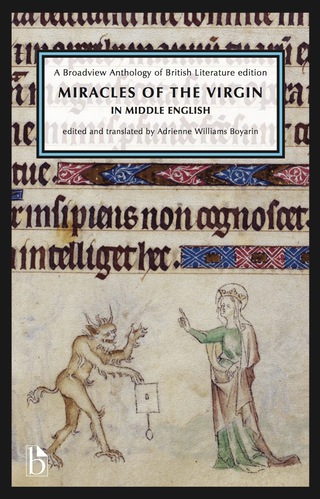 A Broadview Anthology of British Literature edition
MIRACLES OF THE VIRGIN
IN MIDDLE ENGLISH
edited and translated by Adrienne Williams Boyarin
tue.
insipiens non cognoscet:
intelliget hec.
b